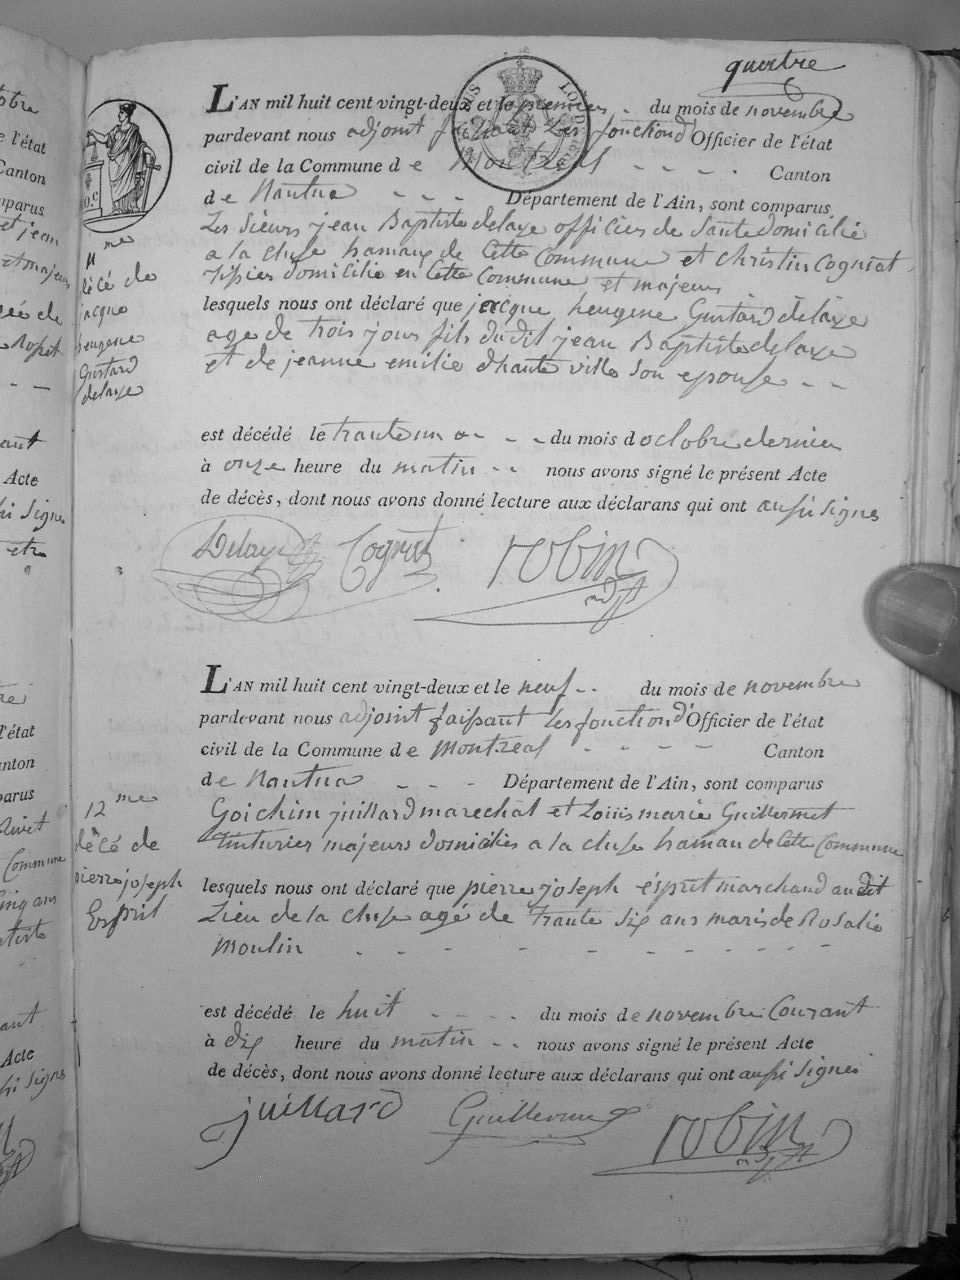 quatre
L'AN mil huit cent vingt-deux et le premier du mois de novembre
pardevant nous adjoint faisant Les fonctiond Officier de l'état
civil de la Commune de Montreal - - - - Canton
de Nantua - - - Département de l'Ain, sont comparus
Les Sieurs jean Baptiste delaye officier de Santé domicilié
a la cluse hamaux de Cette Commune et christin Cogniat
domicilié en Cette Commune et majeurs
lesquels nous ont déclaré que jacque heugene Gustard delaye
age de trois jours fils du dit jean Baptiste delaye
et de jeanne emilie d'haute ville son epouse - -
est décédé le trante un - - - du mois d'octobre dernier
à onze heure du matin - - nous avons signé le présent Acte
de décès, dont nous avons donné lecture aux déclarans qui ont aussi signes
11 me
décé de
jacque
heugene
Gustard
delaye
Delaye Cogniat robin
adjt
L'AN mil huit cent vingt-deux et le neuf - - du mois de novembre
pardevant nous adjoint faissant Les fonctiond' Officier de l'état
civil de la Commune de Montreal - - - - Canton
de Nantua - - - Département de l'Ain, sont comparus
Goichim juillard marechal et Louis marie Guillermet
tinturier majeurs domiciliés a la cluse hamau de Cette Commune
lesquels nous ont déclaré que pierre joseph ésprit marchand au dit
Lieu de la cluse agé de trante six ans maris de Rosalie
Moulin - - - - - - - - - -
est décédé le huit - - - - du mois de novembre Courant
à dix heure du matin - - nous avons signé le présent Acte
de décès, dont nous avons donné lecture aux déclarans qui ont aussi Signes
12 me
décé de
pierre joseph
Esprit
juillard Guillermet robin
adjt